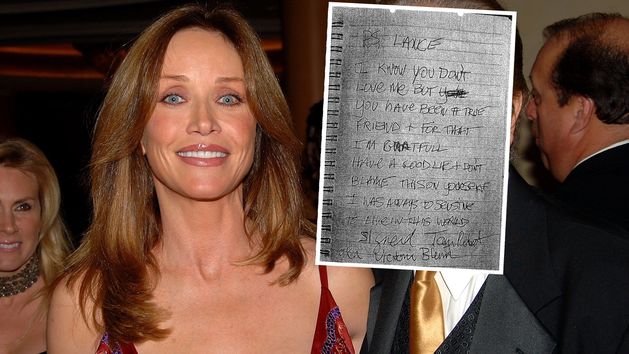 PS. LANCE
I KNOW YOU DON'T
LOVE ME BUT
YOU HAVE BEEN A TRUE
FRIEND + FOR THAT
I'M GRATFULL
HAVE A GOOD LIFE + DON'T
BLAME THIS ON YOURSELF
I WAS TO
TO LIVE IN THIS WORLD
Signed
Victoria